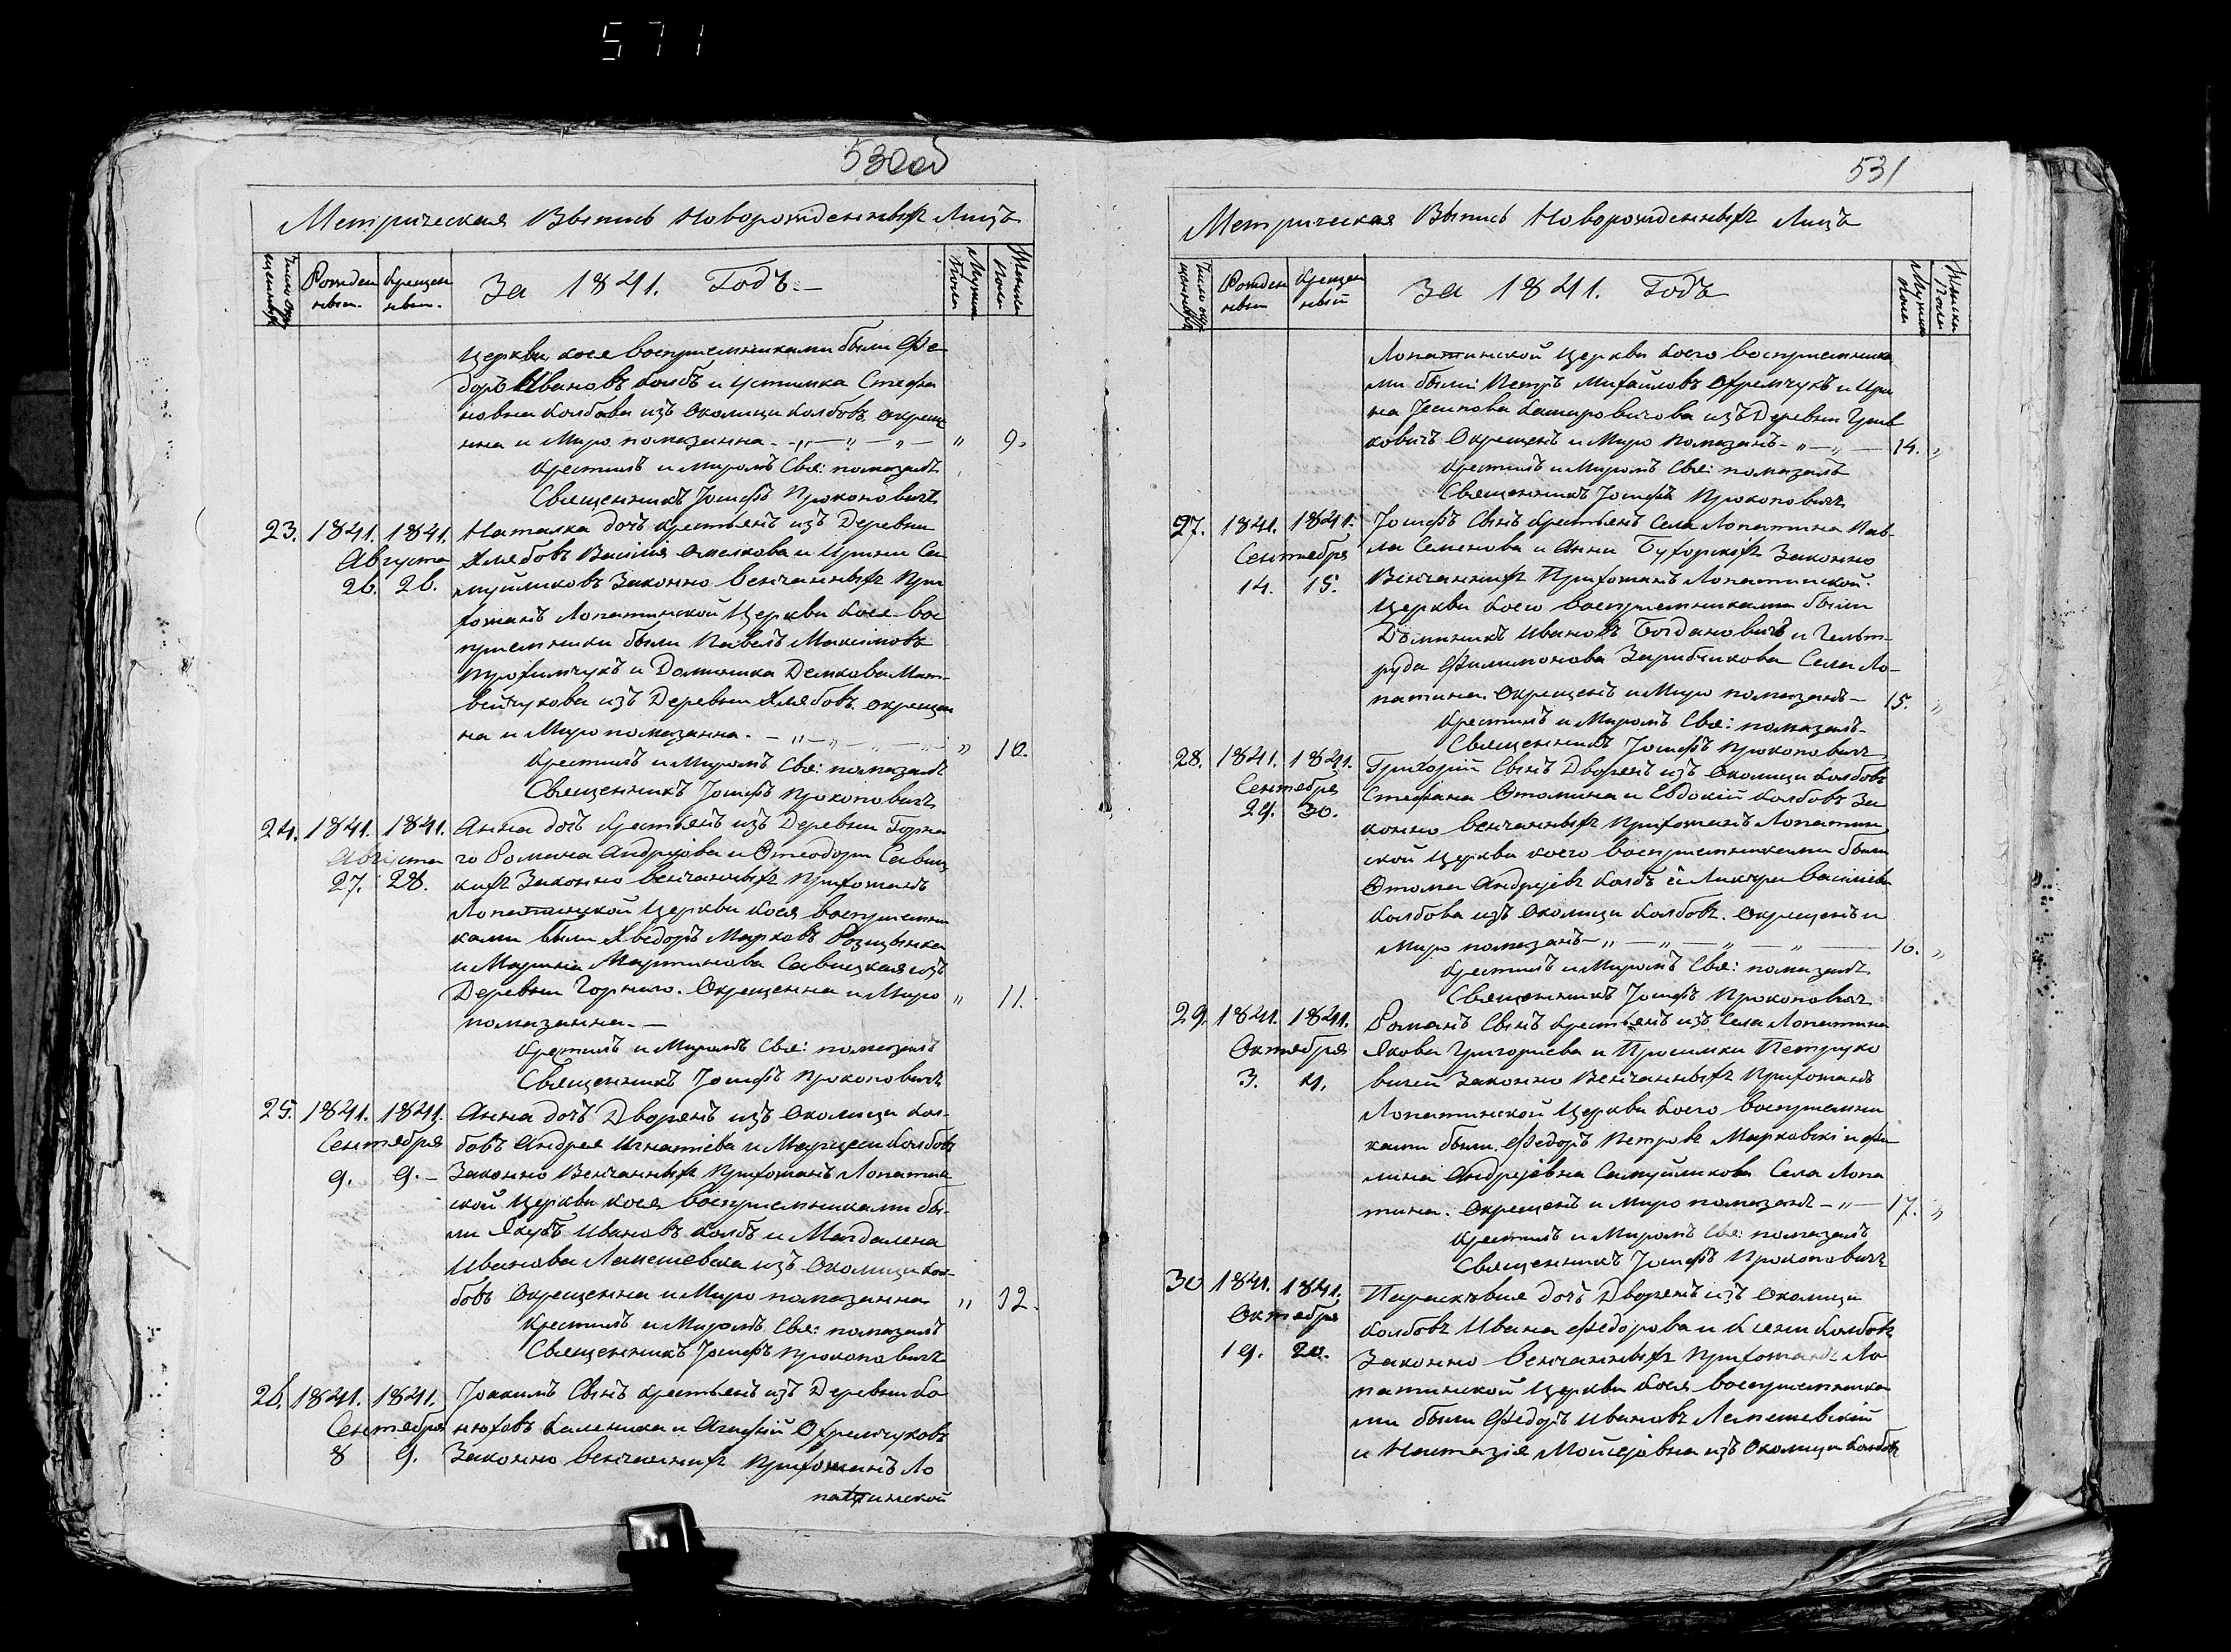 571
530об
Метрическая Выпись Новорожденныхъ Лицъ
Число окрещенныхъ
Рожденныи.
Крещенныи.
За 1841. Годъ. —
Мужска Пола
Женска Пола
Церкви, коея воспріемниками были Фе
доръ Ивановъ Колбъ и Устимка Стефа
новна Колбова изъ Околицы Колбовъ. окреще
нна и Миро помазанна. - „ — „ — „ — „ 9.
Крестилъ и Миромъ Свя: помазалъ
Священникъ Іосифъ Прокоповичъ
23. 1841. 1841. Наталка дочъ крестьянъ изъ Деревни
Августа Хлябовъ Василія Омелкова и Ирини Са
26. 26. муйликовъ Законно венчанныхъ При
хожанъ Лопатинской Церкви коея вос
пріемники были Павелъ Максимовъ
Трохимчукъ и Доминика Демкова Мат-
вейчукова изъ Деревни Хлябовъ. окрещен
на и Миро помазанна. - „ — „ — „ — „ 10.
Крестилъ и Миромъ Свя: помазалъ
Священникъ Іосифъ Прокоповичъ
24. 1841. 1841. Анна дочъ Крестьянъ изъ Деревни Горна
Августа го Романа Андреева и Өтеодори Савиц
27. 28. кихъ Законно венчанныхъ Прихожанъ
Лопатинской Церкви коея воспріемни
ками были Хведоръ Марковъ
и Марина Мартинова Савицкая изъ
Деревни Горнаго. Окрещенна и Миро „ 11.
помазанна. —
Крестилъ и Миромъ Свя: помазалъ
Священникъ Іосифъ Прокоповичъ
25. 1841. 1841. Анна дочъ Дворянъ изъ Околицы Кол-
Сентября бовъ Андрея Игнатіева и Марцеси Колбовъ
9. 9. — Законно Венчанныхъ Прихожанъ Лопатин
ской Церкви коея воспріемниками бы-
ли Якубъ Ивановъ Колбъ и Магдалена
Иванова Лемешевска изъ Околицы Кол-
бовъ Окрещенна и Миро помазанна „ 12.
Крестилъ и Миромъ Свя: помазалъ
Священникъ Іосифъ Прокоповичъ
26. 1841. 1841. Іоакимъ Сынъ крестьянъ изъ Деревни Ко
Сентября нюховъ Каленика и Агафіи Охремчуковъ
8 9. Законно венчанныхъ Прихожанъ Ло
патинской
531
Метрическая Выпись Новорожденныхъ Лицъ
Число окрещенныхъ
Рожденныи
Крещенныи
За 1841. Годъ
Мужска Пола
Женски Пола
Лопатинской Церкви коего воспріемника
ми были Петръ Михайловъ Охремчукъ и Ири
на Іосипова Каспровичова изъ Деревни Грив
ковичъ Окрещенъ и Миро Помазанъ - „ — „ — 14. „
Крестилъ и Миромъ Свя: помазалъ
Священникъ Іосифъ Прокоповичъ
27. 1841. 1841. Іосифъ Сынъ крестьянъ Села Лопатина Пав-
Сентября ла Семенова и Анни Законно
14. 15. Вѣнчанныхъ Прихожанъ Лопатинской
Церкви коего воспріемниками были
Доминикъ Ивановъ Богдановичъ и Гельт-
руда Филимонова Села Ло-
патина. Окрещенъ и Миро помазанъ — 15. „
Крестилъ и Миромъ Свя: помазалъ
Священникъ Іосифъ Прокоповичъ
28. 1841. 1841. Григорій Сынъ Дворянъ изъ Околицы Колбовъ
Сентября Стефана Өтомина и Евдокіи Колбовъ За
29. 30. конно венчанныхъ Прихожанъ Лопатин
ской Церкви коего воспріемниками были
Өтома Андреевъ Колбъ и Василіева
Колбова изъ Околицы Колбовъ. Окрещенъ и
Миро помазанъ - „ — „ — „ — „ — 16. „
Крестилъ и Миромъ Свя: помазалъ
Священникъ Іосифъ Прокоповичъ
29. 1841. 1841. Романъ Сынъ крестьянъ изъ Села Лопатина
Октября Якова Григоріева и Просимки Петруко
3. 4. вичей Законно Венчанныхъ Прихожанъ
Лопатинской Церкви коего воспріемни
ками были Федоръ Петровъ Марковскі и
Андреевна Самуйликова Села Лопа
тина. Окрещенъ и Миро помазанъ - „ — 17. „
Крестилъ и Миромъ Свя: помазалъ
Священникъ Іосифъ Прокоповичъ
30 1841. 1841. Параскѣвія дочъ Дворянъ изъ Околицы
Октября Колбовъ Ивана Федорова и Ксени Колбовъ
19. 20. Законно венчанныхъ Прихожанъ Ло
патинской Церкви коея воспріемника
ми были Федоръ Ивановъ Лемешевскій
и Настазія Мойсеовна изъ Околицы Колбовъ